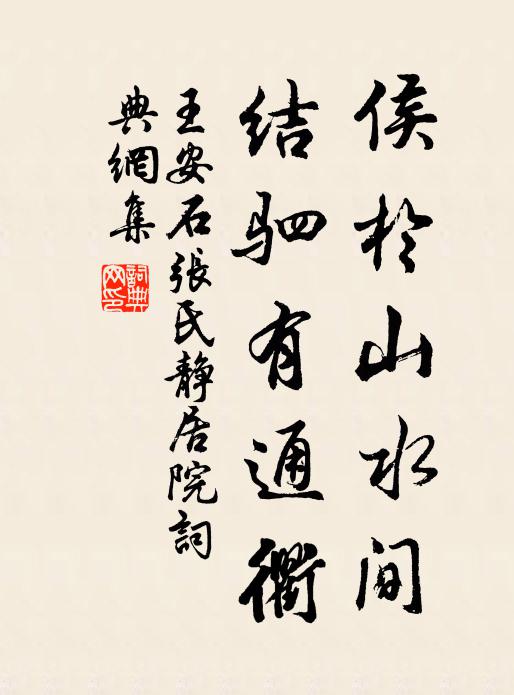 侯於山水间
结驷有通衢
王安石张氏静居院詞
典網集
詞典
网印